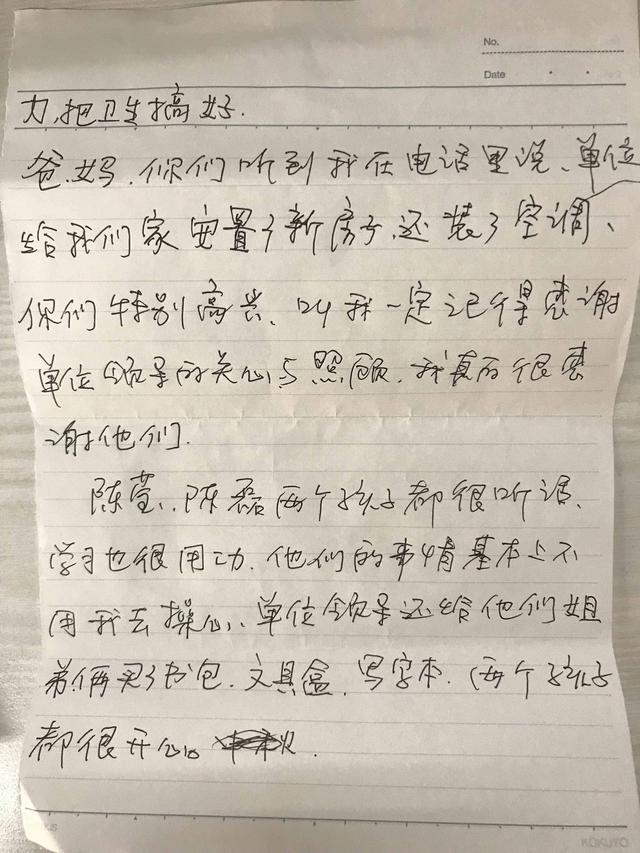 No.
Date
力,把卫生搞好.
爸.妈.你们听到我在电话里说、单位
给我们家安置了新房子.还装了空调、
你们特别高兴.叫我一定记得感谢
单位领导的关心与照顾.我真的很感
谢他们.
陈莹、陈磊两个孩子都很听话、
学习也很用功.他们的事情基本上不
用我去操心、单位领导还给他们姐
弟俩买了书包.文具盒.写字本.两个孩子
都很开心。
KOKUYO